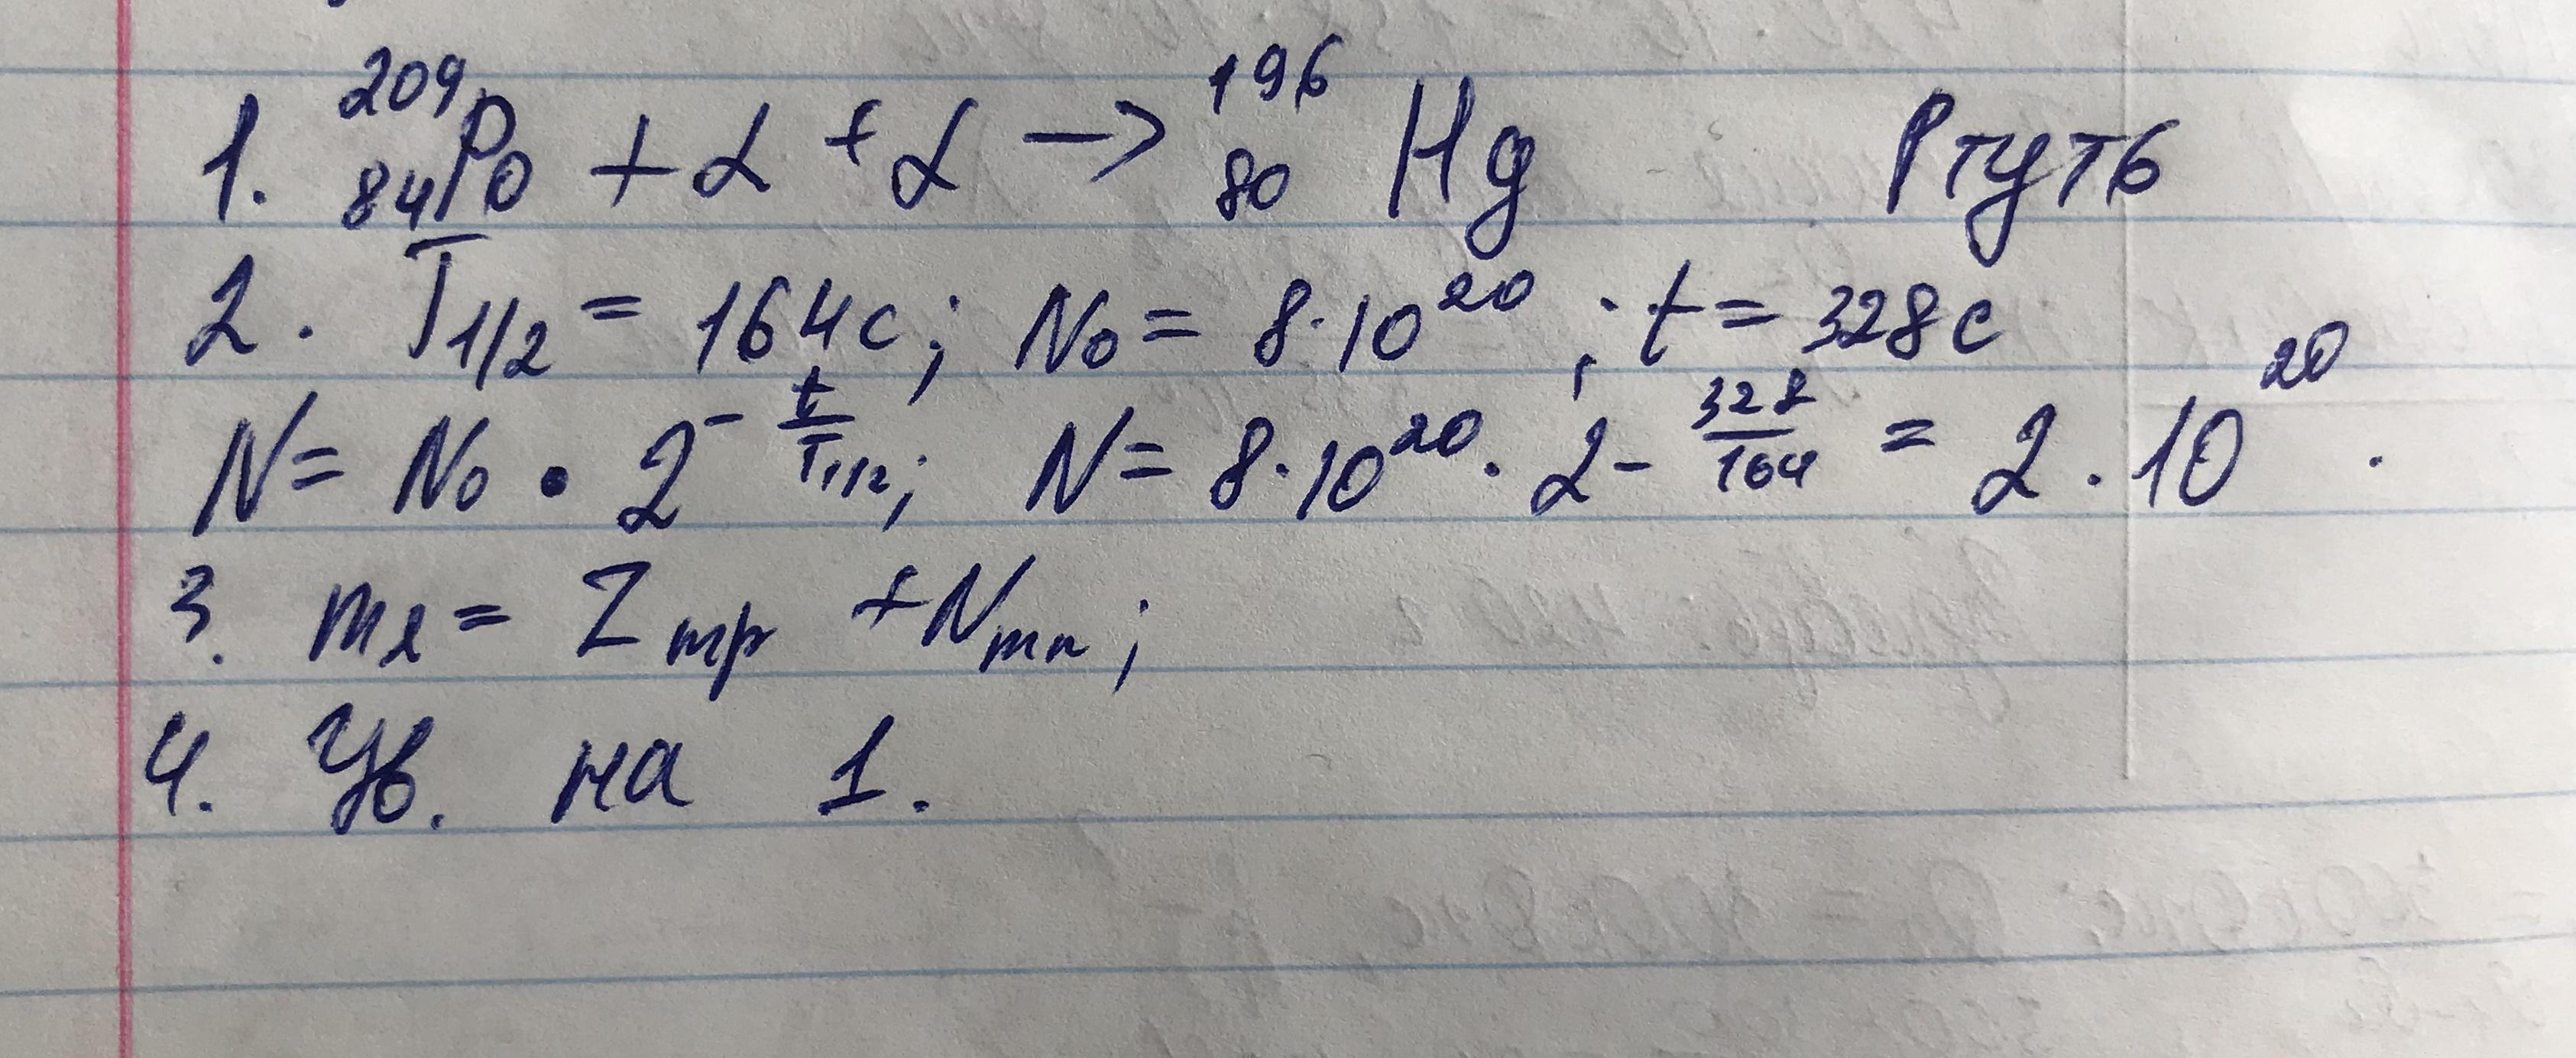 1. ²⁰⁹₈₄Po + α + α → ¹⁹⁶₈₀Hg Ртуть
2. T₁/₂ = 164с; N₀ = 8·10²⁰; t = 328с
N = N₀ • 2^(-t/T₁/₂); N = 8·10²⁰·2 - 328/164 = 2·10²⁰.
3. mя = Zmp + Nmn;
4. Ув. на 1.